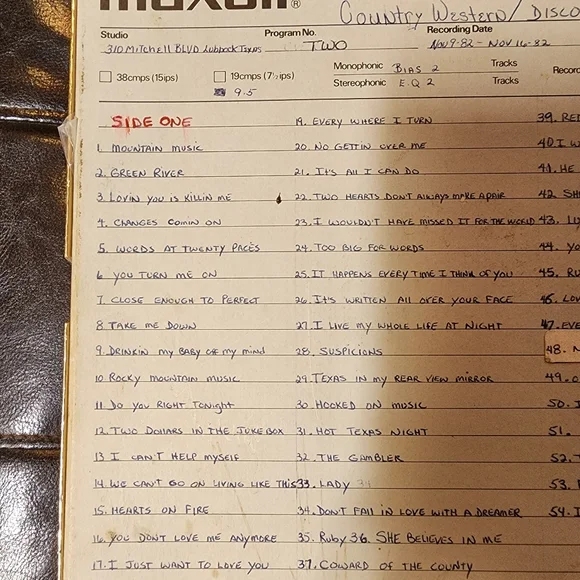 maxell®
Country Western/ DISCO
Studio
Program No.
Recording Date
310 Mitchell BLVD Lubbock Texas
TWO
Nov 9-82 - Nov 16-82
38cmps (15ips)
19cmps (7½ips)
9.5
Monophonic BIAS 2 Tracks
Stereophonic E.Q 2 Tracks
Recor
SIDE ONE
1. MOUNTAIN MUSIC
2. GREEN RIVER
3. LOVIN YOU IS KILLIN ME
4. CHANGES COMIN ON
5. WORDS AT TWENTY PACES
6 YOU TURN ME ON
7. CLOSE ENOUGH TO PERFECT
8 TAKE ME DOWN
9. DRINKIN MY BABY OFF MY MIND
10 ROCKY MOUNTAIN MUSIC
11 DO YOU RIGHT TONIGHT
12. TWO DOLLARS IN THE JUKEBOX
13 I CAN'T HELP MYSELF
14. WE CAN'T GO ON LIVING LIKE THIS
15. HEARTS ON FIRE
16. YOU DONT LOVE ME ANYMORE
17. I JUST WANT TO LOVE YOU
19. EVERY WHERE I TURN
20. NO GETTIN OVER ME
21. It's ALL I CAN DO
22. TWO HEARTS DON'T ALWAYS MAKE A PAIR
23. I WOULDN'T HAVE MISSED IT FOR THE WORLD
24. TOO BIG FOR WORDS
25. IT HAPPENS EVERY TIME I THINK OF YOU
26. It's WRITTEN ALL OVER YOUR FACE
27. I LIVE MY WHOLE LIFE AT NIGHT
28. SUSPICIONS
29. TEXAS IN MY REAR VIEW MIRROR
30. HOOKED ON MUSIC
31. HOT TEXAS NIGHT
32. THE GAMBLER
33. LADY
34. DON'T FALL IN LOVE WITH A DREAMER
35. Ruby 36. SHE BELIEVES IN ME
37. COWARD OF THE COUNTY
39. RED
40. I W
41. HE
42. SH
43.
44. YO
45. RU
46. LOV
47. EVE
48. N
49. O
50. I
51.
52. T
53.
54. I